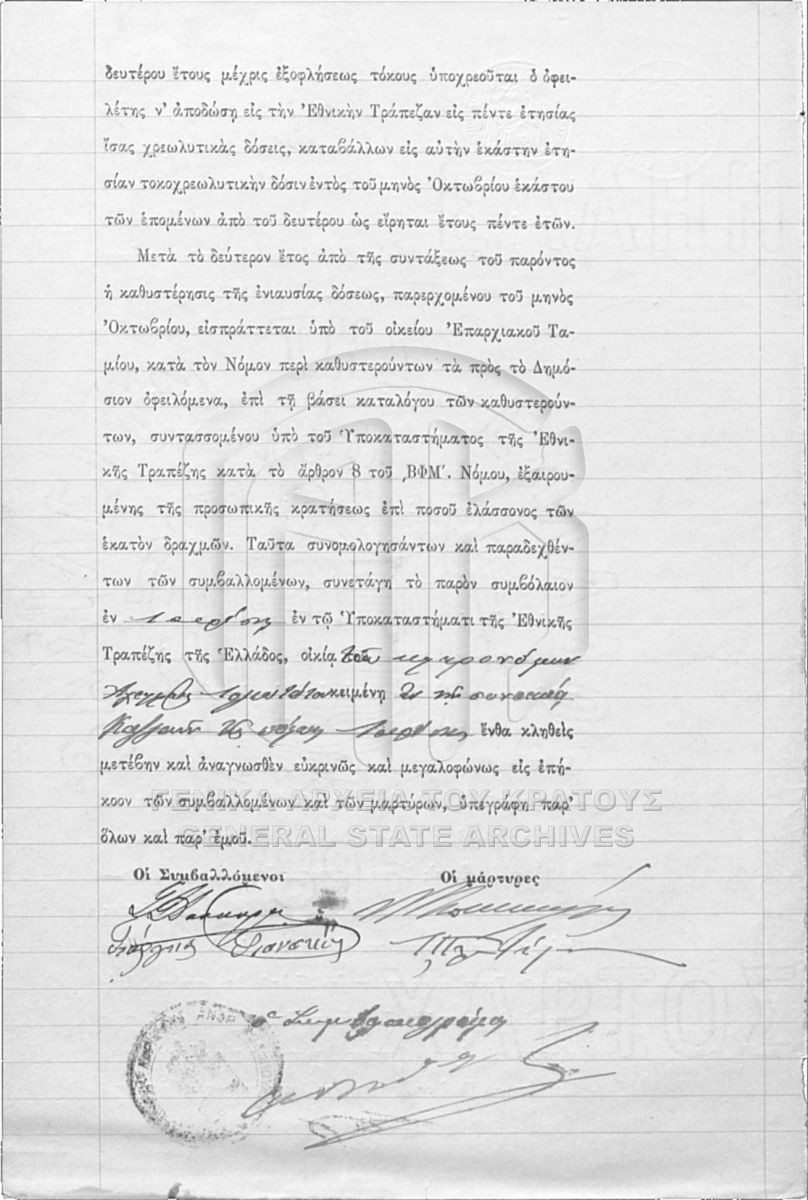 δευτέρου ἔτους μέχρις ἐξοφλήσεως τόκους ὑποχρεοῦται ὁ ὀφει-
λέτης ν' ἀποδώσῃ εἰς τὴν Ἐθνικὴν Τράπεζαν εἰς πέντε ἐτησίας
ἴσας χρεωλυτικὰς δόσεις, καταβάλλων εἰς αὐτὴν ἑκάστην ἐτη-
σίαν τοκοχρεωλυτικὴν δόσιν ἐντὸς τοῦ μηνὸς Ὀκτωβρίου ἑκάστου
τῶν ἑπομένων ἀπὸ τοῦ δευτέρου ὡς εἴρηται ἔτους πέντε ἐτῶν.
Μετὰ τὸ δεύτερον ἔτος ἀπὸ τῆς συντάξεως τοῦ παρόντος
ἡ καθυστέρησις τῆς ἐνιαυσίας δόσεως, παρερχομένου τοῦ μηνὸς
Ὀκτωβρίου, εἰσπράττεται ὑπὸ τοῦ οἰκείου Ἐπαρχιακοῦ Τα-
μίου, κατὰ τὸν Νόμον περὶ καθυστερούντων τὰ πρὸς τὸ Δημό-
σιον ὀφειλόμενα, ἐπὶ τῇ βάσει καταλόγου τῶν καθυστερούν-
των, συντασσομένου ὑπὸ τοῦ Ὑποκαταστήματος τῆς Ἐθνι-
κῆς Τραπέζης κατὰ τὸ ἄρθρον 8 τοῦ ͵ΒΦΜ΄. Νόμου, ἐξαιρου-
μένης τῆς προσωπικῆς κρατήσεως ἐπὶ ποσοῦ ἐλάσσονος τῶν
ἑκατὸν δραχμῶν. Ταῦτα συνομολογησάντων καὶ παραδεχθέν-
των τῶν συμβαλλομένων, συνετάγη τὸ παρὸν συμβόλαιον
ἐν Λαρίσῃ ἐν τῷ Ὑποκαταστήματι τῆς Ἐθνικῆς
Τραπέζης τῆς Ἑλλάδος, οἰκίᾳ τῶν κληρονόμων
κειμένῃ ἐν τῇ συνοικίᾳ
τῆς πόλεως Λαρίσης ἔνθα κληθεὶς
μετέβην καὶ ἀναγνωσθὲν εὐκρινῶς καὶ μεγαλοφώνως εἰς ἐπή-
κοον τῶν συμβαλλομένων καὶ τῶν μαρτύρων, ὑπεγράφη παρ'
ὅλων καὶ παρ' ἐμοῦ.
ΓΕΝΙΚΑ ΑΡΧΕΙΑ ΤΟΥ ΚΡΑΤΟΥΣ
GENERAL STATE ARCHIVES
Οἱ Συμβαλλόμενοι Οἱ μάρτυρες
ὁ Συμβολαιογράφος